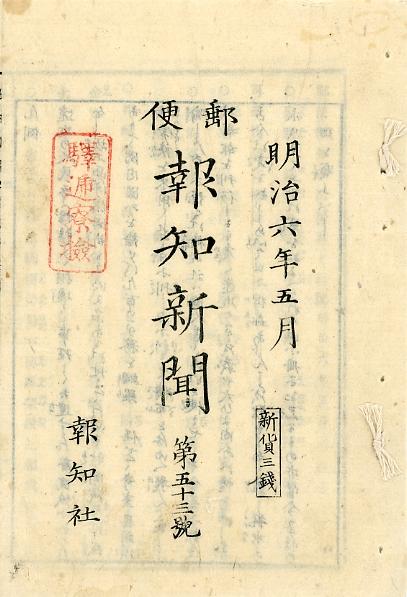 明治六年五月
新貨三錢
郵便
報知新聞
第五十三號
驛逓寮檢
報知社